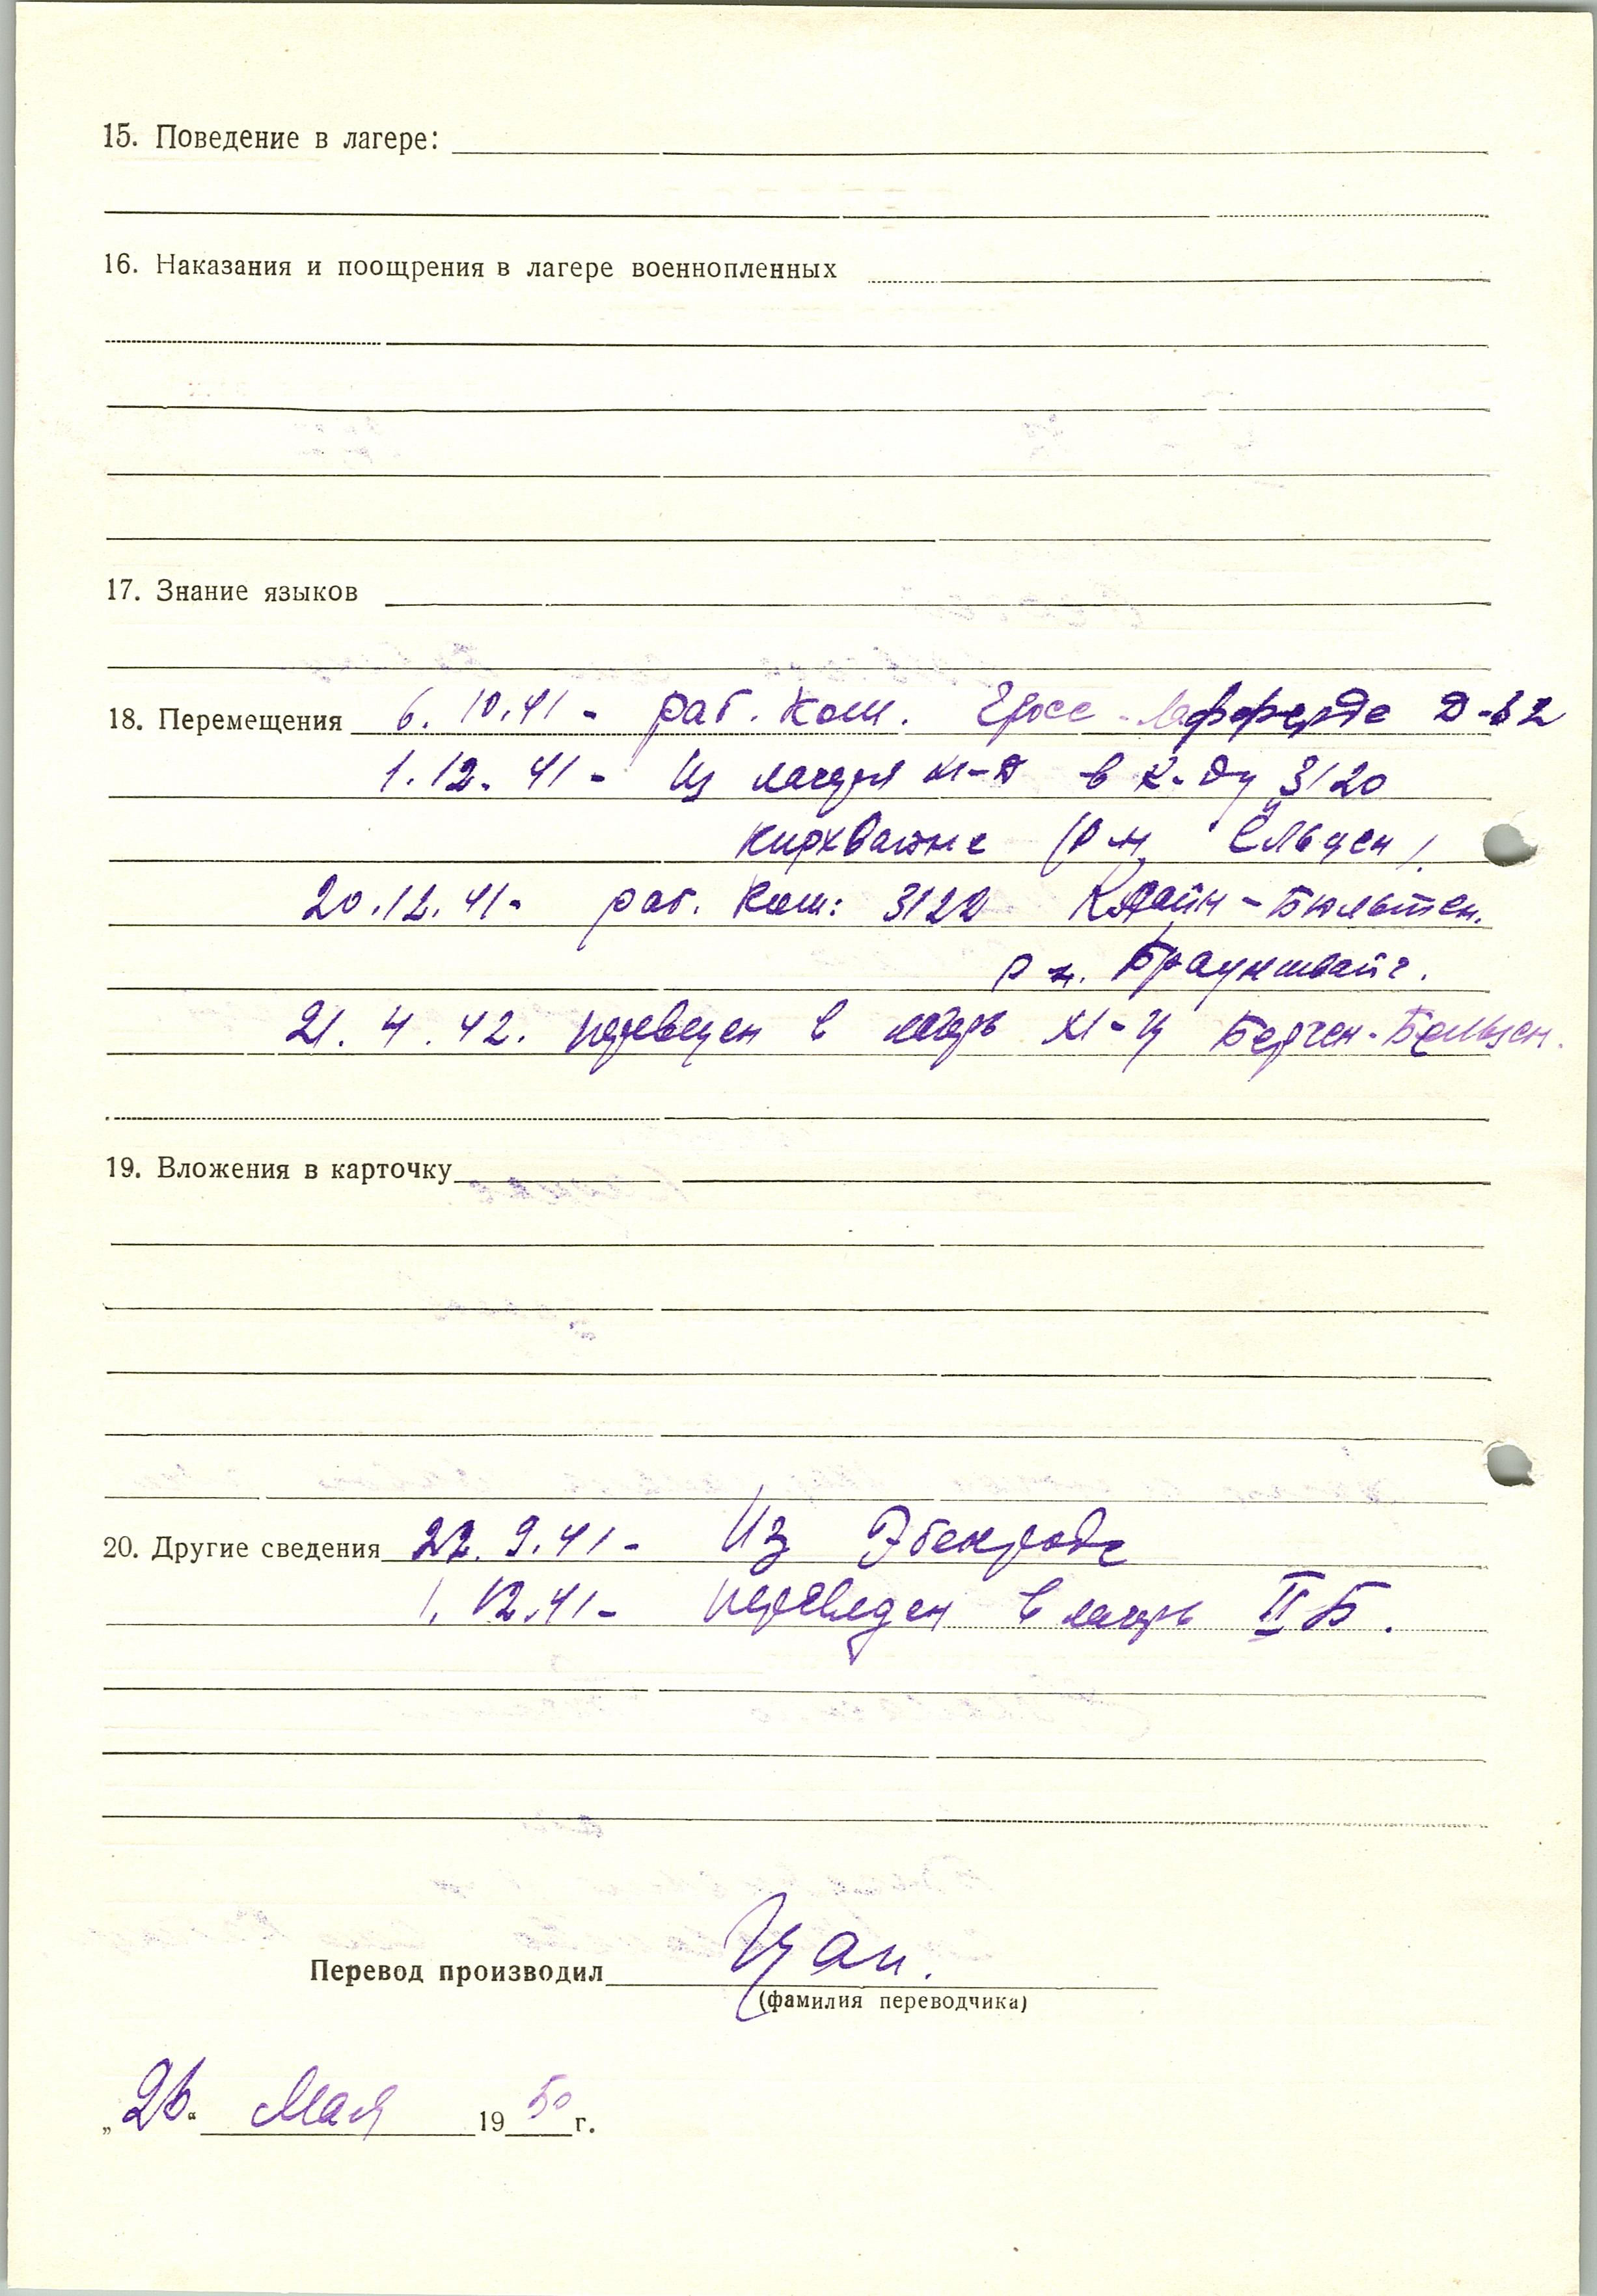 15. Поведение в лагере:
16. Наказания и поощрения в лагере военнопленных
17. Знание языков
18. Перемещения 6.10.41- раб. ком. Гросс-Лафферде Д-
1.12.41- Из лагеря XI-Д в к-ду 3120
Кирхвайне (р-н Ельцен).
20.12.41- раб. ком: 3120 Клайн-Бюльтен.
р-н. Брауншвайг.
21.4.42. переведен в лагерь XI-Ц Берген-Бельзен.
19. Вложения в карточку
20. Другие сведения 9.41- Из Эбенроде
1.12.41- переведен в лагерь II Б.
Перевод производил Цан.
(фамилия переводчика)
„26." Мая 1950 г.